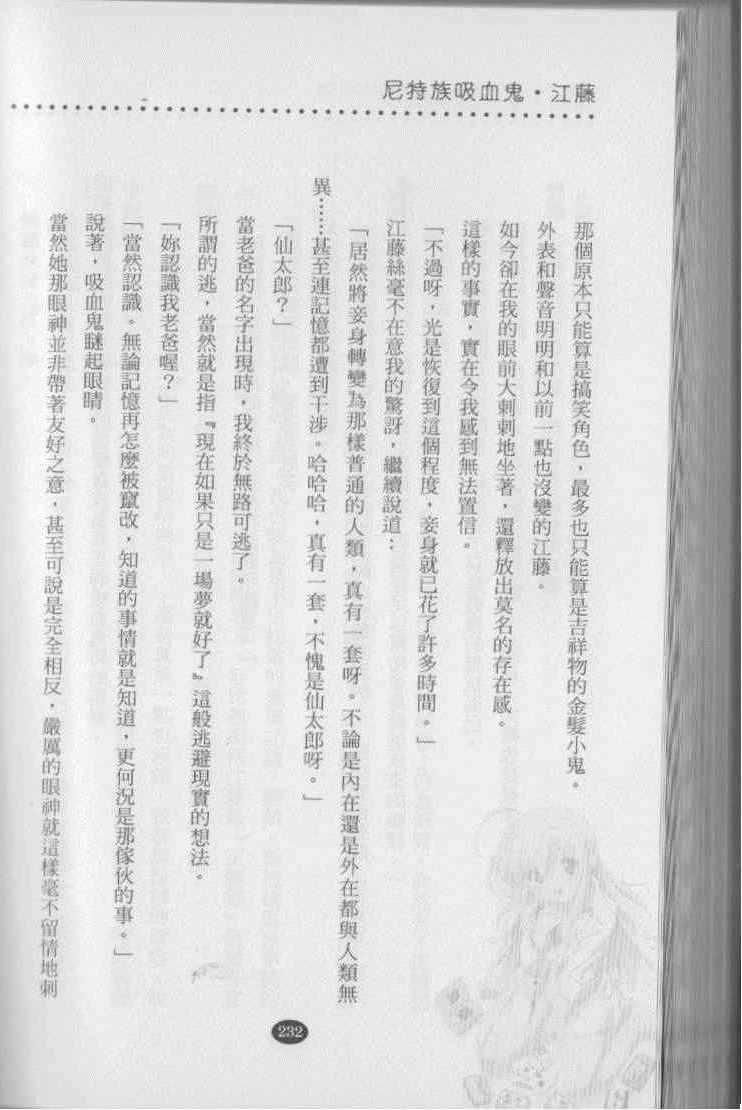 尼特族吸血鬼・江藤
那個原本只能算是搞笑角色，最多也只能算是吉祥物的金髮小鬼。
外表和聲音明明和以前一點也沒變的江藤。
如今卻在我的眼前大剌剌地坐著，還釋放出莫名的存在感。
這樣的事實，實在令我感到無法置信。
「不過呀，光是恢復到這個程度，妾身就已花了許多時間。」
江藤絲毫不在意我的驚訝，繼續說道：
「居然將妾身轉變為那樣普通的人類，真有一套呀。不論是內在還是外在都與人類無
異……甚至連記憶都遭到干涉。哈哈哈，真有一套，不愧是仙太郎呀。」
「仙太郎？」
當老爸的名字出現時，我終於無路可逃了。
所謂的逃，當然就是指『現在如果只是一場夢就好了』這般逃避現實的想法。
「妳認識我老爸喔？」
「當然認識。無論記憶再怎麼被竄改，知道的事情就是知道，更何況是那傢伙的事。」
說著，吸血鬼瞇起眼睛。
當然她那眼神並非帶著友好之意，甚至可說是完全相反，嚴厲的眼神就這樣毫不留情地刺
232